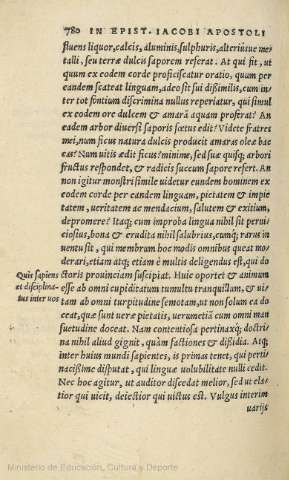 780 IN EPIST. IACOBI APOSTOLI
fluens liquor, calcis, aluminis, sulphuris, alteriusue me
talli, seu terræ dulcis saporem referat. At qui fit, ut
quum ex eodem corde proficiscatur oratio, quum per
eandem scateat linguam, adeo sit sui dißimilis, cum in
ter tot fontium discrimina nullus reperiatur, qui simul
ex eodem ore dulcem & amarã aquam proferat? An
eadem arbor diuersi saporis fœtus edit? Videte fratres
mei, num ficus natura dulcis producit amaras oleæ bac
cas? Num uitis ædit ficus? minime, sed suæ quisq; arbori
fructus respondet, & radicis succum sapore refert. An
non igitur monstri simile uidetur eundem hominem ex
eodem corde per eandem linguam, pietatem & impie
tatem, ueritatem ac mendacium, salutem & exitium,
depromere? Itaq; cum improba lingua nihil sit perni
ciosius, bona & erudita nihil salubrius, cumq; rarus in
uentu sit, qui membrum hoc modis omnibus queat mo
derari, etiam atq; etiam è multis deligendus est, qui do
Quis sapiens ctoris prouinciam suscipiat. Huic oportet & animum
et disciplina- esse ab omni cupiditatum tumultu tranquillam, & ui-
tus inter uos tam ab omni turpitudine semotam, ut non solum ea do
ceat, quæ sunt ueræ pietatis, uerumetiã cum omni man
suetudine doceat. Nam contentiosa pertinaxq; doctri
na nihil aliud gignit, quàm factiones & dißidia. Atq;
inter huius mundi sapientes, is primas tenet, qui perti
nacißime disputat, qui linguæ uolubilitate nulli cedit.
Nec hoc agitur, ut auditor discedat melior, sed ut ela-
tior qui uicit, deiectior qui uictus est. Vulgus interim
uarijs
Ministerio de Educación, Cultura y Deporte